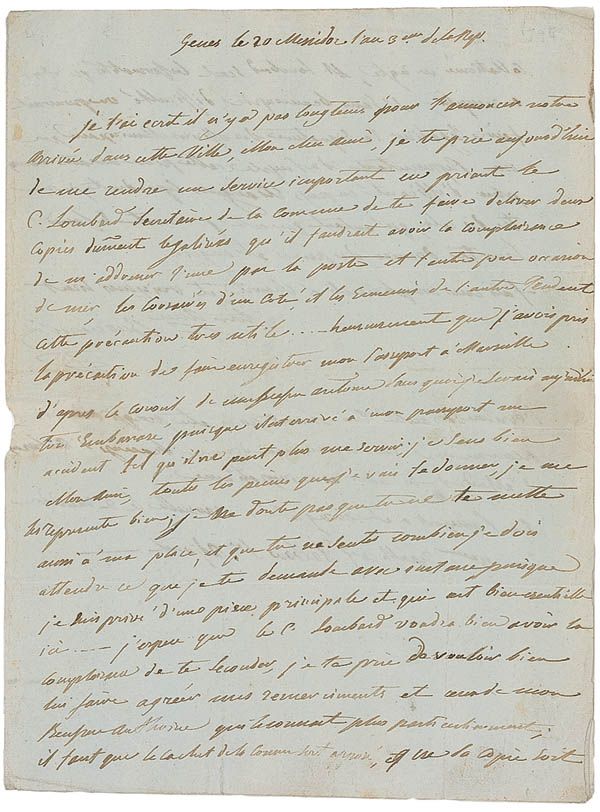 Genes le 20 Messidor l'an 3eme de la Rep.
je t'ai ecrit il n'y a pas longtems pour t'annoncer notre
arrivée dans cette Ville, Mon cher Ami, je te prie aujourd'hui
de me rendre un service important en priant le
C. Lombard Secretaire de la commune de te faire delivrer deux
Copies dûment legalisées qu'il faudrait avoir la complaisance
de m'addresser l'une par la poste et l'autre par occasion
de mer les Corsaires d'un Coté, et les Ennemis de l'autre Rendent
cette précaution tres utile .... heureusement que j'avois pris
la précaution de faire enregistrer mon Passeport à Marseille
d'apres le conseil de antoine sans quoi je serais aujourd'hui
tres Embarassé, puisque il est arrivé à mon passeport un
accident tel qu'il ne peut plus me servir, je sens bien
Mon Ami, toutes les peines que je vais te donner, je me
les represente bien, je ne doute pas que tu ne te mette
aussi à ma place, et que tu ne sente combien je dois
attendre ce que je te demande avec instance puisque
je suis privé d'une piece principale et qui est bien essentielle
ici ---- j'espere que le C. Lombard voudra bien avoir la
complaisance de te seconder, je te prie de vouloir bien
lui faire agréer mes remerciments et ceux de mon
qui le connait plus particulierement;
il faut que le cachet de la Commune soit apposé, et que la copie soit